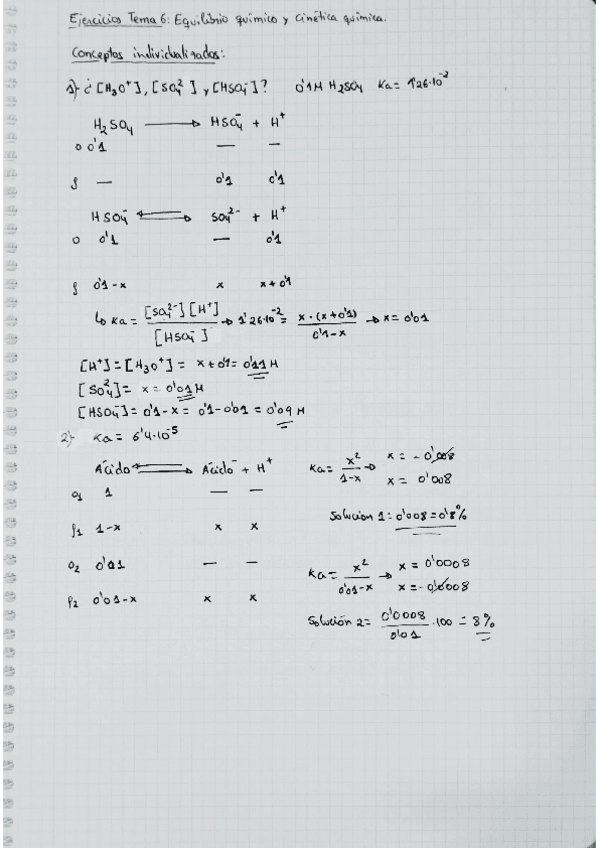 Ejercicios Tema 6: Equilibrio químico y cinética química.
Conceptos individualizados:
1) ¿[H3O+], [SO4 2-] y [HSO4-]? 0'1M H2SO4 Ka = 1'26·10^-2
H2SO4 → HSO4- + H+
0 0'1 — —
f — 0'1 0'1
HSO4- ⇌ SO4 2- + H+
0 0'1 — 0'1
f 0'1-x x x+0'1
↳ Ka = [SO4 2-][H+] / [HSO4-] → 1'26·10^-2 = x·(x+0'1) / 0'1-x → x = 0'01
[H+] = [H3O+] = x+0'1 = 0'11 M
[SO4 2-] = x = 0'01 M
[HSO4-] = 0'1-x = 0'1-0'01 = 0'09 M
2) Ka = 6'4·10^-5
Ácido ⇌ Ácido- + H+
01 1 — —
f1 1-x x x
Ka = x^2 / 1-x → x = -0'008
x = 0'008
Solución 1: 0'008 = 0'8%
02 0'01 — —
f2 0'01-x x x
Ka = x^2 / 0'01-x → x = 0'0008
x = -0'0008
Solución 2 = 0'0008 / 0'01 · 100 = 8%